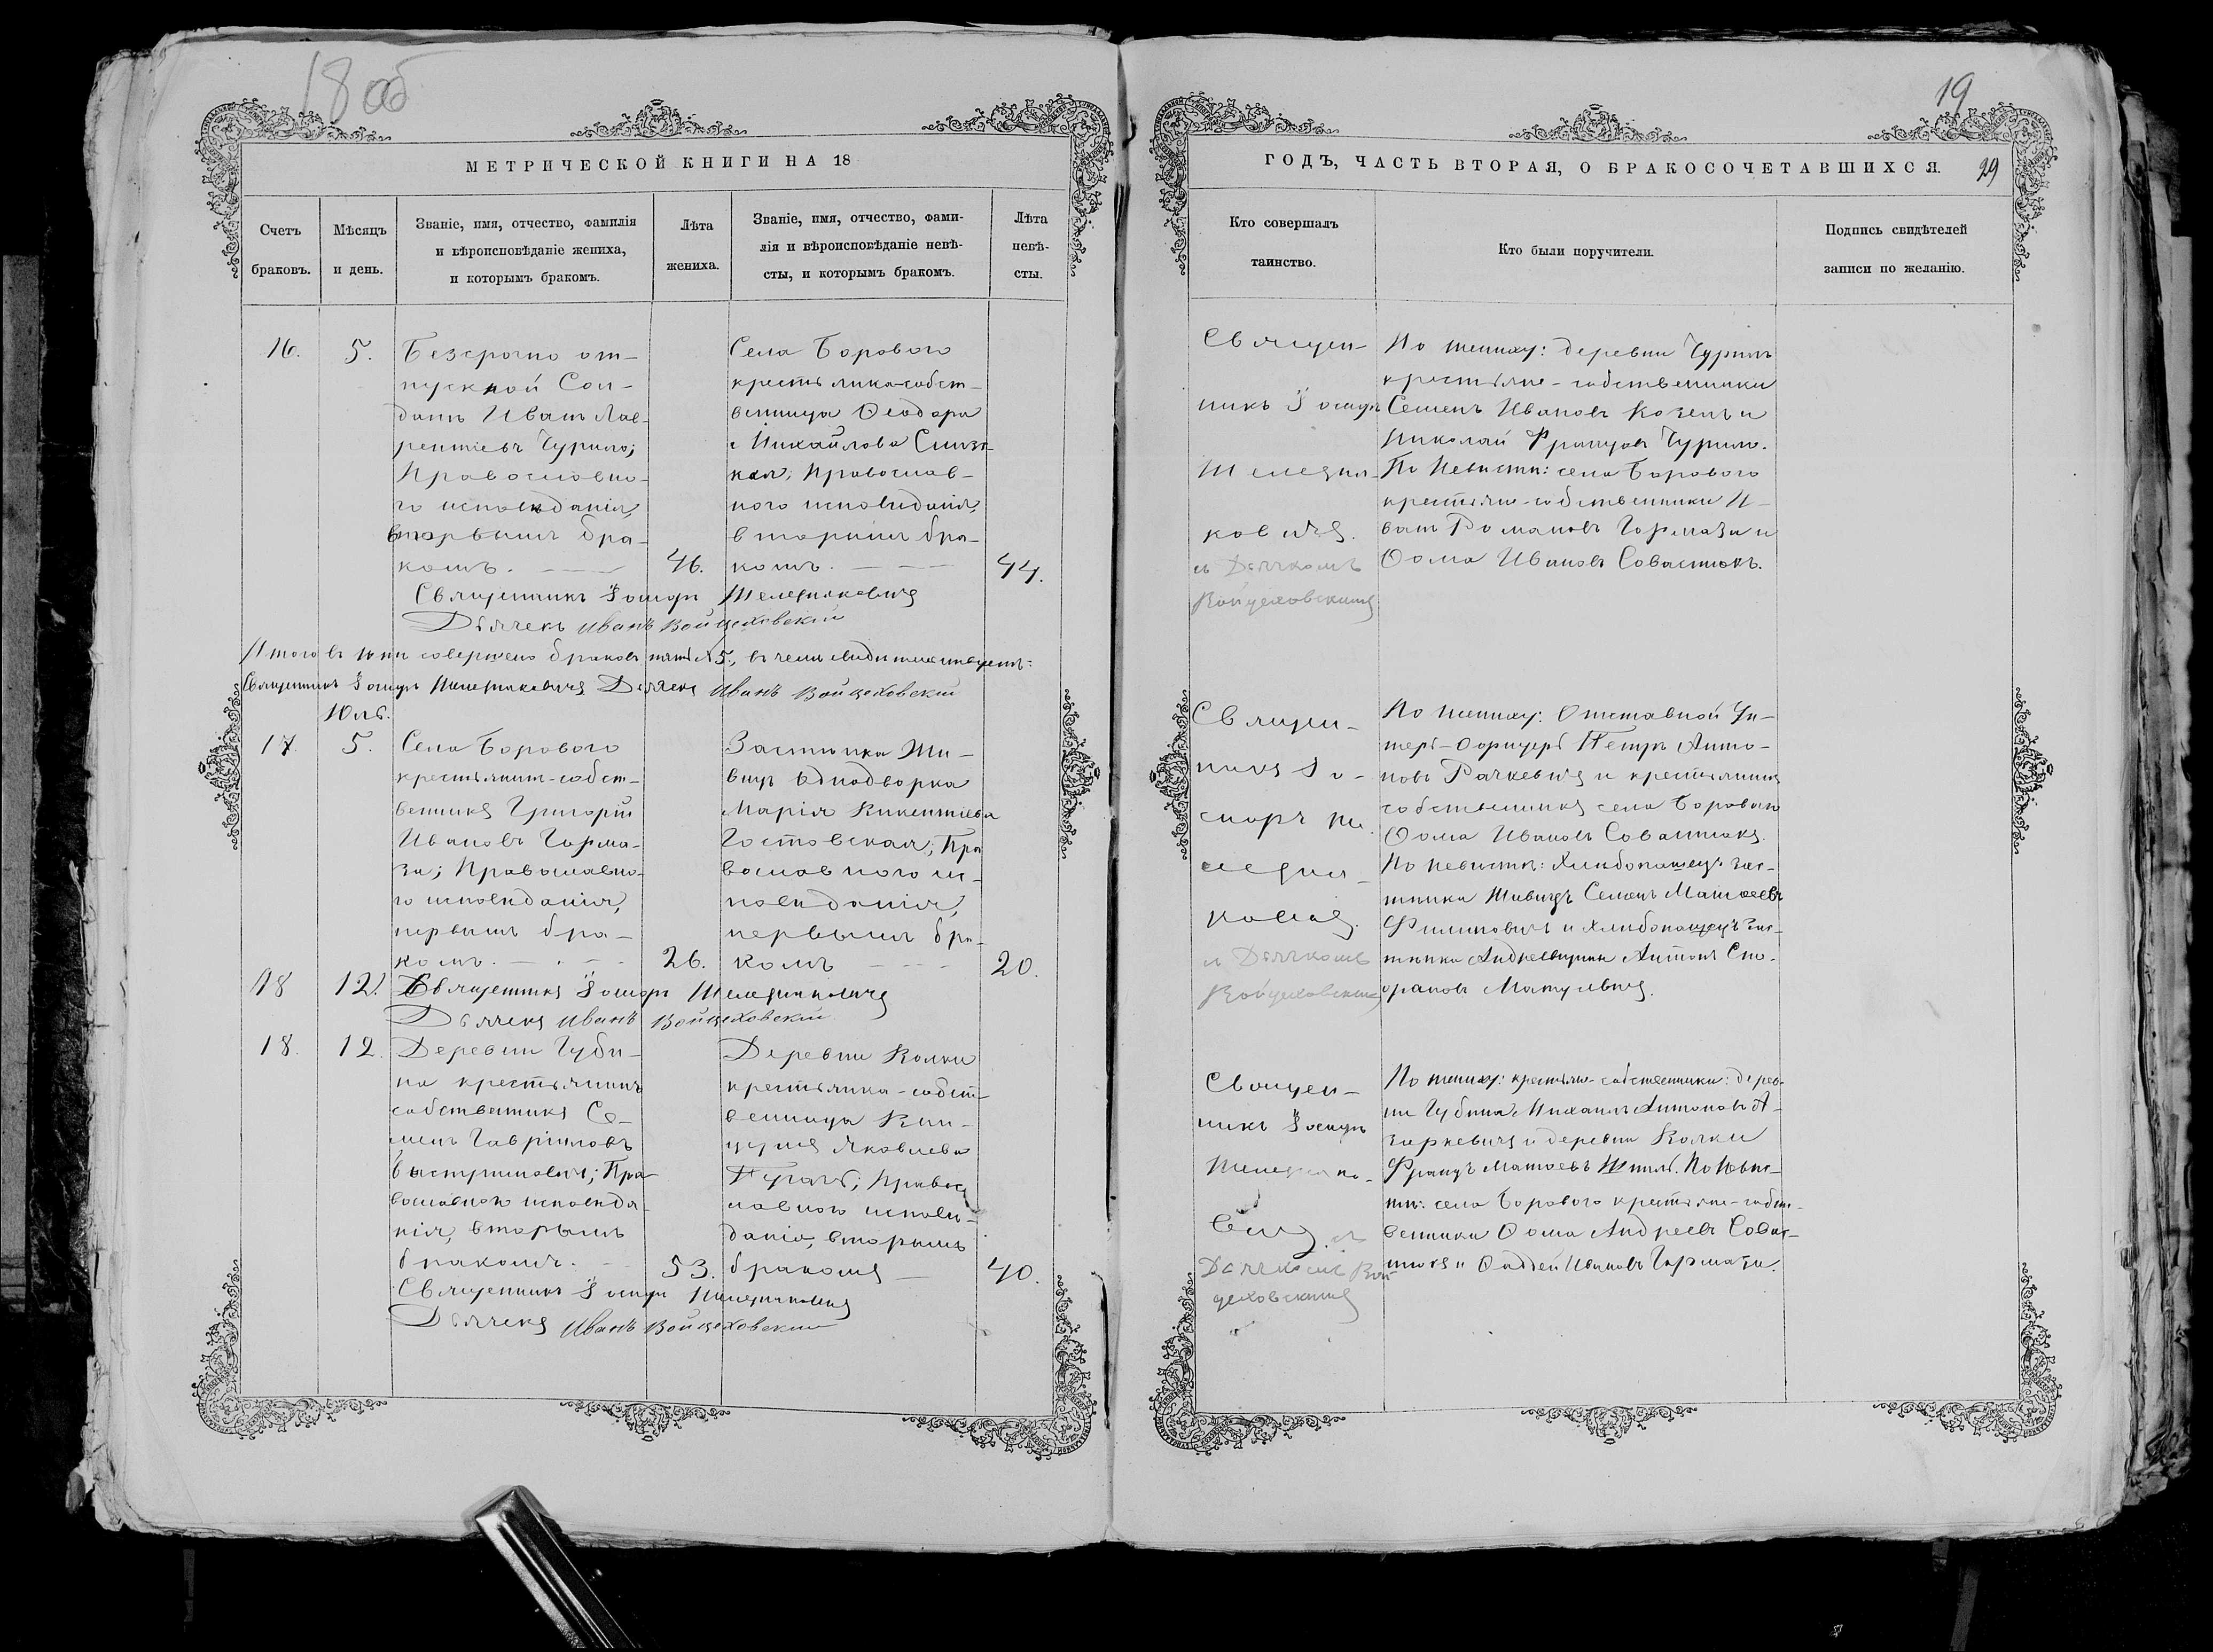 18 об
МЕТРИЧЕСКОЙ КНИГИ НА 18
Счетъ браковъ.
Мѣсяцъ и день.
Званіе, имя, отчество, фамилія
и вѣроисповѣданіе жениха,
и которымъ бракомъ.
Лѣта жениха.
Званіе, имя, отчество, фами-
лія и вѣроисповѣданіе невѣ-
сты, и которымъ бракомъ.
Лѣта невѣ-
сты.
16.
5.
Безсрочно от-
пускной Сол-
датъ Иванъ Лав-
рентіевъ Чурило;
Православно-
го исповѣданія,
вторымъ бра-
комъ.
46.
Села Борового
крестьянка-собст-
венница Ѳеодора
Михайлова
Православ-
ного исповѣданія,
вторымъ бра-
комъ.
44.
Священникъ Іосифъ
Дьячекъ Иванъ Войцеховскій
Итого въ совершено браковъ пять № 5, въ чемъ свидѣтельствуемъ:
Священникъ Іосифъ Дьячекъ Иванъ Войцеховскій
Юль.
17.
5.
Села Борового
крестьянинъ-собст-
венникъ Григорій
Ивановъ Гарма-
за; Православно-
го исповѣданія,
первымъ бра-
комъ.
26.
Застѣнка Жи-
вицъ однодворка
Марія Викентіева
Гостовская; Пра
вославного ис-
повѣданія,
первымъ бра-
комъ
20.
18
12.
Священникъ Іосифъ
Дьячекъ Иванъ Войцеховскій
18.
12.
Деревни Губи-
на крестьянинъ
собственникъ Се-
менъ Гавріиловъ
Пра-
вославного исповѣда-
нія, вторымъ
бракомъ.
53.
Деревни Колки
крестьянка-собст-
венница Вин-
Яковлева
Правос
лавного исповѣ-
данія, вторымъ
бракомъ
40.
Священникъ Іосифъ
Дьячекъ Иванъ Войцеховскій
19
ГОДЪ, ЧАСТЬ ВТОРАЯ, О БРАКОСОЧЕТАВШИХСЯ.
29
Кто совершалъ
таинство.
Кто были поручители.
Подпись свидѣтелей
записи по желанію.
Священ-
никъ Іосифъ
съ Дьячкомъ
Войцеховскимъ
По жениху: деревни Чурилъ
крестьяне-собственники
Семенъ Ивановъ Козелъ и
Николай Францовъ Чурило.
По Невѣстѣ: села Борового
крестьяне-собственники И-
ванъ Романовъ Гармаза и
Ѳома Ивановъ Совастюкъ.
Священ-
никъ Іо-
съ Дьячкомъ
Войцеховскимъ
По жениху: Отставной Ун-
теръ-Офицеръ Петръ Анто-
новъ Рачкевичъ и крестьянинъ
собственникъ села Борового
Ѳома Ивановъ Совастюкъ.
По невѣстѣ: Хлѣбопашецъ зас-
тѣнка Живицъ Семенъ Матвеевъ
Филиповичъ и Хлѣбопашецъ зас-
тѣнка Андреевщини Антонъ
Матусевичъ.
Священ-
никъ Іосифъ
съ
Дьячкомъ Вой
цеховскимъ
По жениху: крестьяне-собственники: дерев-
ни Губина Михаилъ Антоновъ А-
заркевичъ и деревни Колки
Францъ Матвеевъ По Невѣс-
тѣ: села Борового крестьяне-собст-
венники Ѳома Андреевъ Совас-
тюкъ и Ѳаддей Ивановъ Гармаза.